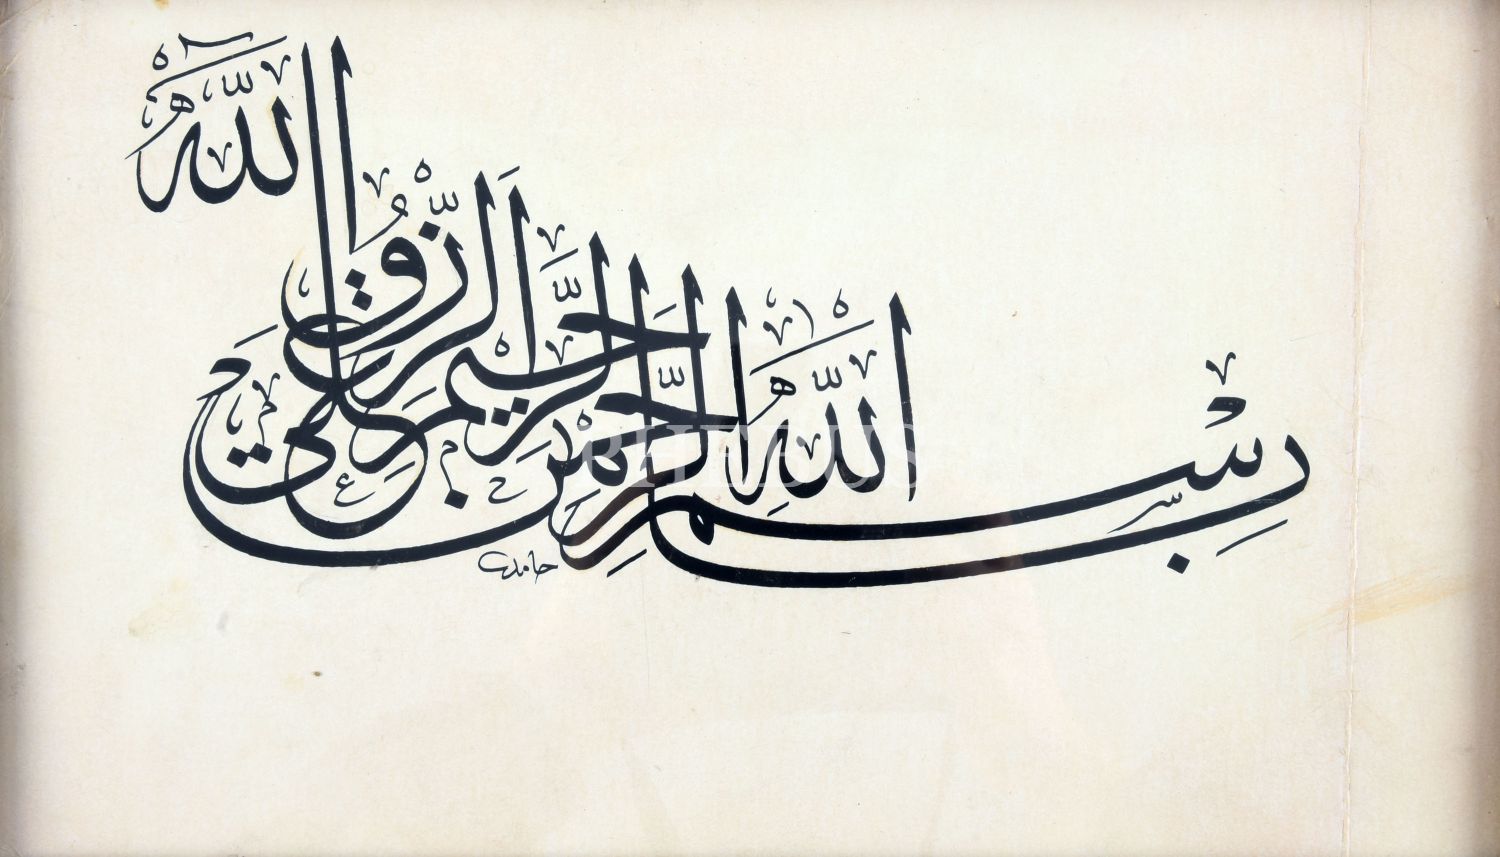 بِسْمِ اللّٰهِ الرَّحْمٰنِ الرَّحِيمِ الرِّزْقُ عَلَى اللّٰهِ
حامد
PHEBUS